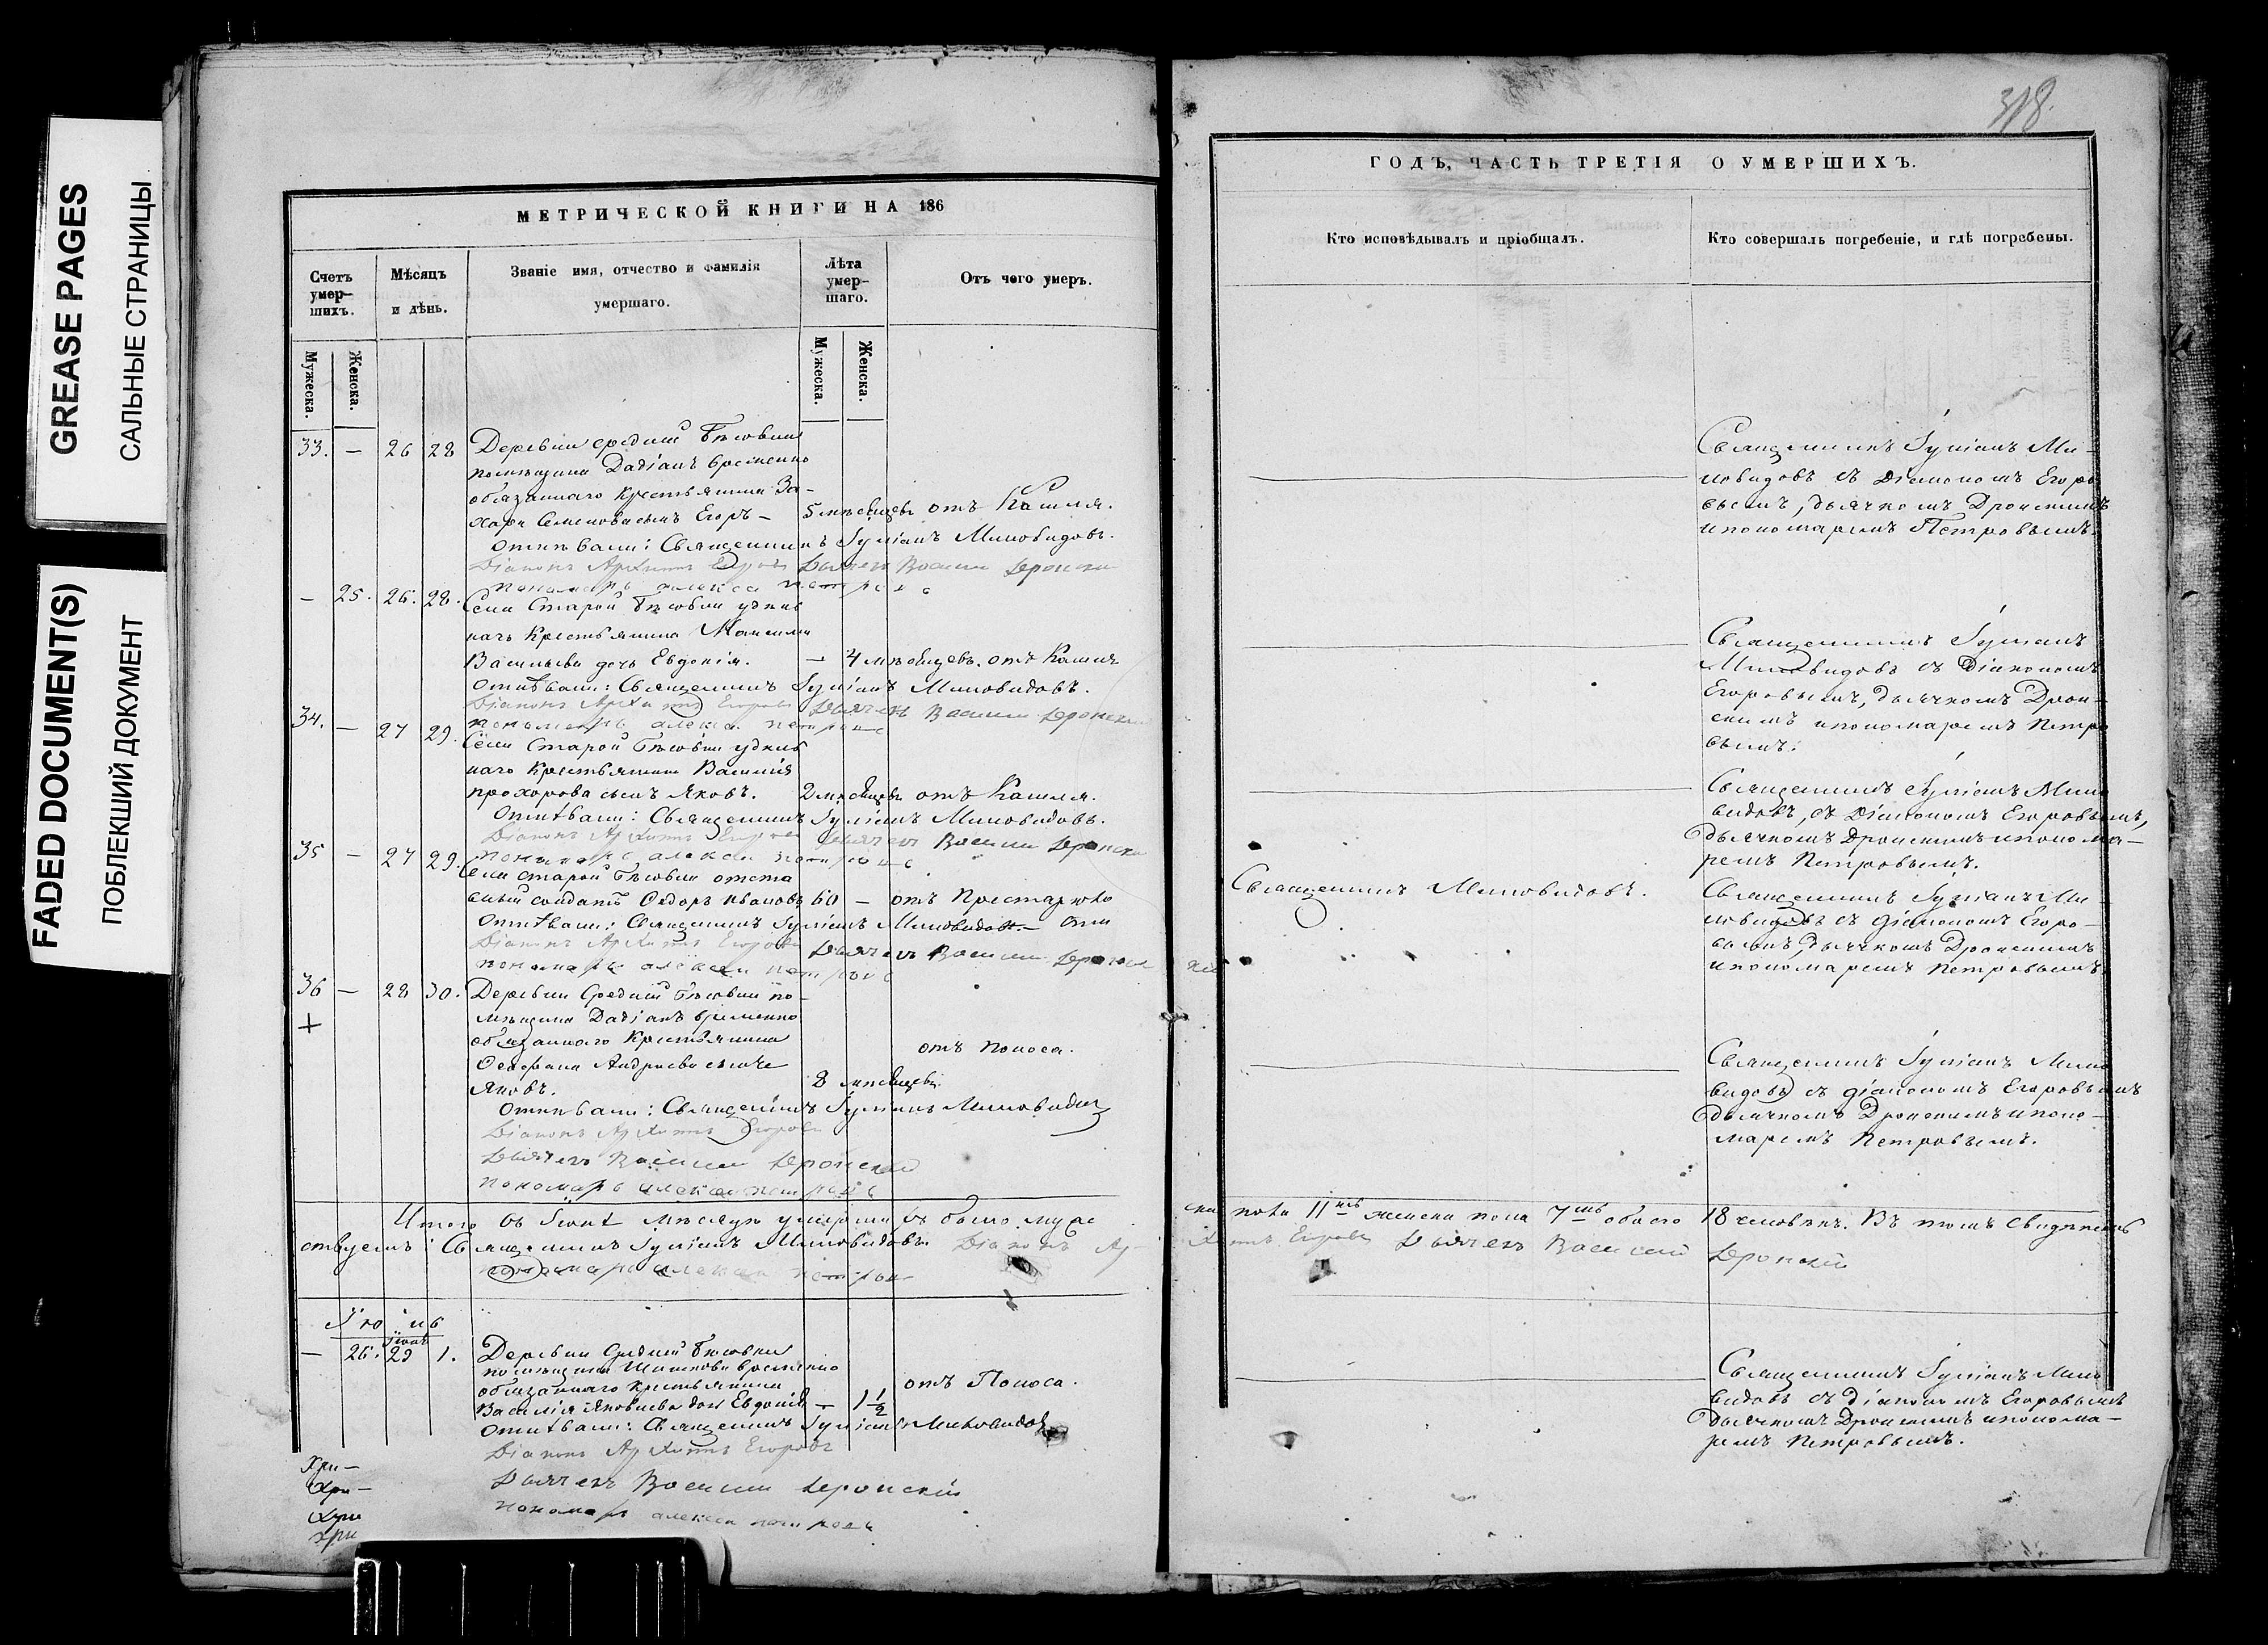 GREASE PAGES
САЛЬНЫЕ СТРАНИЦЫ
FADED DOCUMENT(S)
ПОБЛЕКШИЙ ДОКУМЕНТ
МЕТРИЧЕСКОЙ КНИГИ НА 186
Счетъ умер-шихъ.
Мѣсяцъ и день.
Званіе имя, отчество и фамилія умершаго.
Лѣта умер-шаго.
Отъ чего умеръ.
Мужеска.
Женска.
Мужеска.
Женска.
33. — 26 28 Деревни средней
помѣщика Дадіанъ временно
обязаннаго Крестьянина За-
хара Семенова сынъ Егоръ — 5 мѣсяцевъ отъ Кашля.
отпѣвали: Священникъ Іуліанъ Миловидовъ.
Діаконъ Архипъ Егоровъ Дьячекъ Василій
пономарь алексей петровъ
— 25. 26. 28. Села Старой удѣль
наго Крестьянина Максима
Васильева дочь Евдокія. — 4 мѣсяцевъ. отъ Кашля
Отпѣвали: Священникъ Іуліанъ Миловидовъ.
Діаконъ Архипъ Егоровъ Дьячекъ Василій
пономарь алексей петровъ
34. — 27 29. Села Старой удѣль
наго Крестьянина Василія
прохорова сынъ Яковъ. 2 мѣсяцевъ отъ Кашля.
Отпѣвали: Священникъ Іуліанъ Миловидовъ.
Діаконъ Архипъ Егоровъ Дьячекъ Василій
пономарь алексей петровъ
35 — 27 29. Села Старой отста
вный солдатъ Ѳедоръ Ивановъ 60 — отъ Престарѣло
Отпѣвали: Священникъ Іуліанъ Миловидовъ. сти
Діаконъ Архипъ Егоровъ Дьячекъ Василій
пономарь алексей петровъ
36 — 28 30. Деревни Средней по-
+ мѣщика Дадіанъ временно
обязаннаго Крестьянина отъ Поноса.
Андреева сынъ
Яковъ. 8 мѣсяцевъ.
отпѣвали: Священникъ Іуліанъ Миловидовъ
Діаконъ Архипъ Егоровъ
Дьячекъ Василій
пономарь алексей петровъ
Итого въ Іюнѣ мѣсяцѣ умершихъ было муже
ствуемъ: Священникъ Іуліанъ Миловидовъ. Діаконъ Ар-
пономарь алексей петровъ
Іюль
Іюнь
— 26. 29 1. Деревни Средней
помѣщика временно
обязаннаго крестьянина отъ Поноса.
Василія Яковлева дочь Евдокія — 1 1/2
отпѣвали: Священникъ Іуліанъ Миловидовъ
Діаконъ Архипъ Егоровъ
Дьячекъ Василій
пономарь алексей петровъ
Хри—
Хри—
Хри
хри
318.
ГОДЪ, ЧАСТЬ ТРЕТІЯ О УМЕРШИХЪ.
Кто исповѣдывалъ и пріобщалъ.
Кто совершалъ погребеніе, и гдѣ погребены.
Священникъ Іуліанъ Ми-
ловидовъ съ Діакономъ Егоро
вымъ, дьячкомъ
и пономаремъ Петровымъ.
Священникъ Іуліанъ
Миловидовъ съ Діакономъ
Егоровымъ, дьячкомъ
и пономаремъ Петро
вымъ.
Священникъ Іуліанъ Мило
видовъ, съ Діакономъ Егоровымъ,
дьячкомъ и понома-
ремъ Петровымъ.
Священникъ Миловидовъ.
Священникъ Іуліанъ Ми-
ловидовъ съ діакономъ Егоро-
вымъ, дьячкомъ
и пономаремъ Петровымъ
Священникъ Іуліанъ Мило
видовъ съ діакономъ Егоровымъ
дьячкомъ и поно-
маремъ Петровымъ.
ска пола 11ть женска пола 7мь обоего 18 человѣкъ. Въ томъ свидѣтель
хипъ Егоровъ Дьячекъ Василий
Священникъ Іуліанъ Мило
видовъ съ діакономъ Егоровымъ
дьячкомъ и понома-
ремъ Петровымъ.